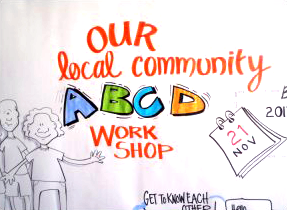 OUR
local community
ABCD
WORK
SHOP
21
NOV
GET TO KNOW EACH
OTHER!